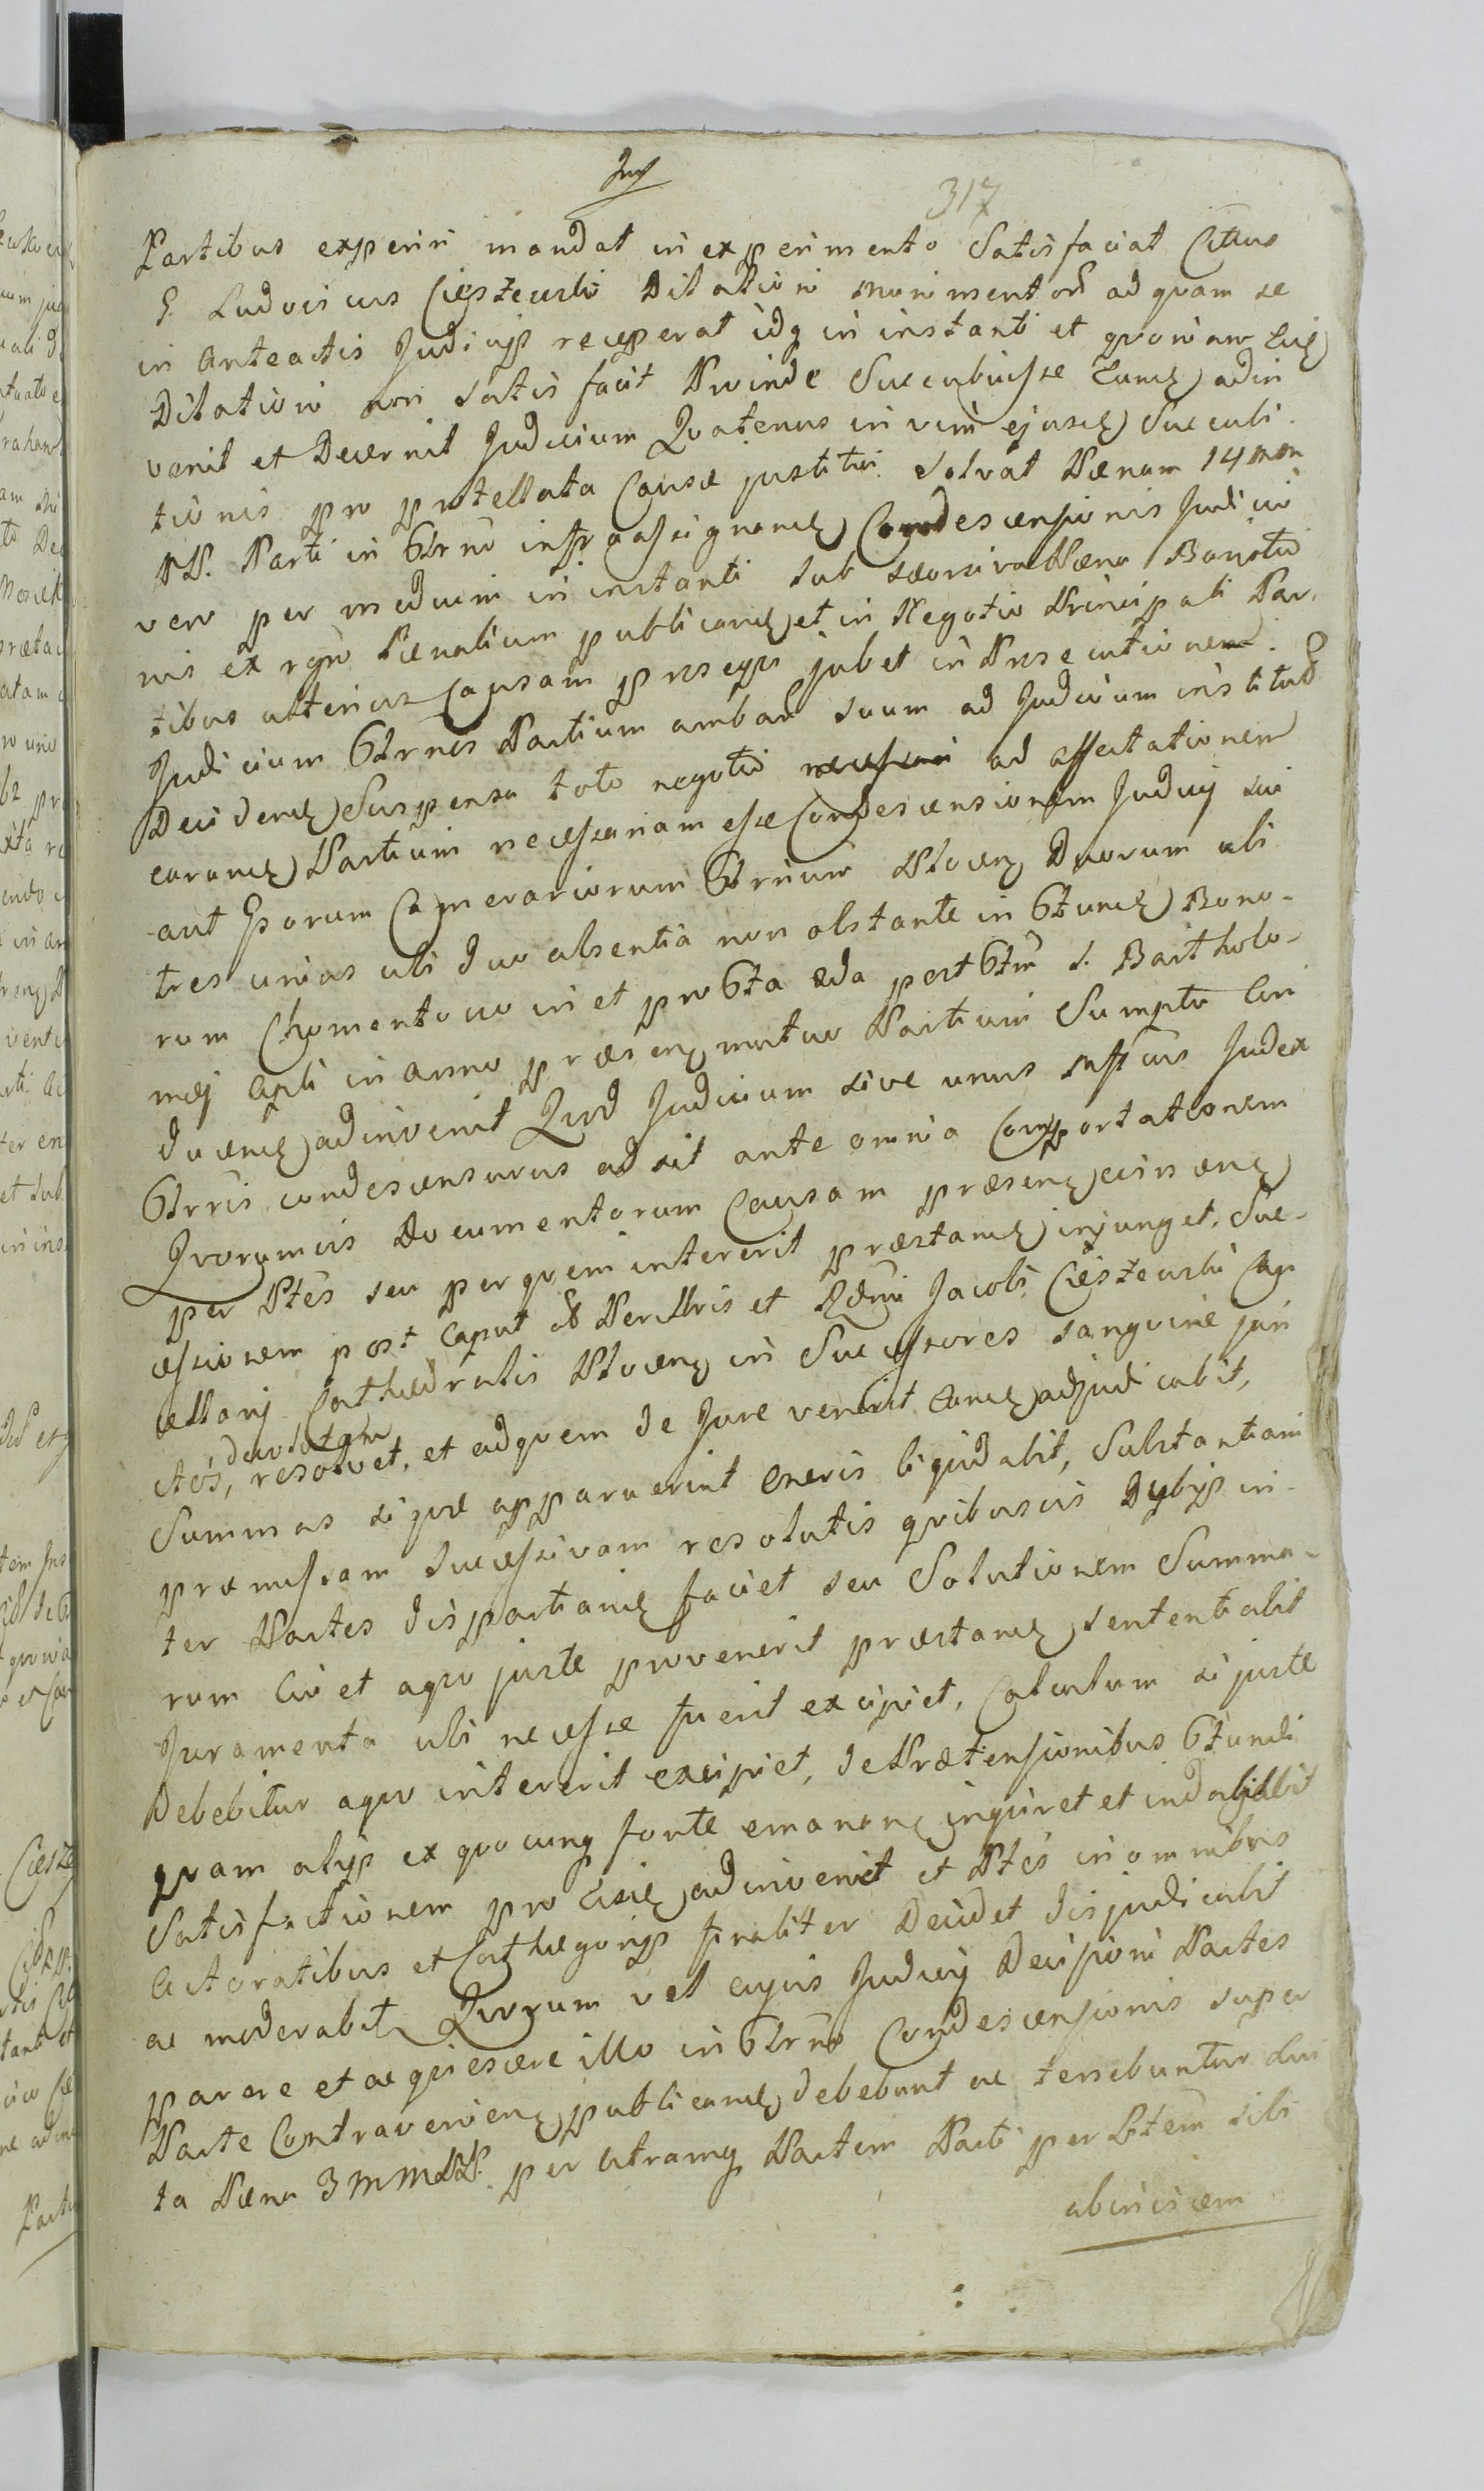 317
Partibus experiri mandat in experimento Satisfaciat Cittus
G. Ludovicus Ciesztewski Dilationi munimentor ad quam se
in Anteactis Judicijs receperat idq in instanti et quoniam
Dilationi non satis facit Proinde Succubuisse adin
venit et Decernit Judicium Quatenus in vim ejusd Succubi
tionis pro protellata Causae justitia Solvat Paenam 14 mm
PP. Parti in Gtrno infra assignand Condescensionis Judicio
vero per medium in instanti sub saeorsiva Paena Bannitio
nis ex rgro Paenalium publicand et in Negotio Principali Par
tibus ulterius Causam prosequi jubet in Prosecutionem.
Judicium Gtrnes Partium ambar suum ad Judicium institut
Decidend Suspenso toto negotio ad affectationem
earund Partium necessariam esse Condescensionem Judicij sui
aut Gsorum Camerariorum Gtrnium Plocen Duorum ubi
tres unius ubi duo absentia non obstante in Gtund Bono-
rum Chomentowo in et pro Gta 2da post Gtm S. Bartholo-
maej Apli in anno praesen mutuo Partium Sumptu Con
ducend adinvenit Quod Judicium sive unus Judex
Gtrnis condescensurus adsit ante omnia Comportationem
Quorumvis Documentorum Causam praesen concernen
per Ptes seu per quem intererit praestand injunget, Suc-
cessionem post Caput Perillris et Rdmi Jacobi Ciesztewski Can
cellarij Cathedralis Plocen in Successores sanguine jun
devolutam
ctos, resolvet, et ad quem de Jure venerit eand adjudicabit,
Summas si quae apparuerint oneris liquidabit, Substantiam
praemissam Successivam resolutis quibusvis Dubijs in-
ter Partes dispartiand faciet seu Solutionem Summa-
rum Cui et a quo juste provenerit praestand sententiabit
Juramenta ubi necesse fuerit excipiet, Calculum si juste
Debebitur a quo intererit excipiet, de Praetensionibus Gtundi
quam alijs ex quocunq fonte emanan inquiret et indagabit
Satisfactionem pro Eisd adinveniet et Ptes in omnibus
Actoratibus et Cathegorijs finaliter Decidet disjudicabit
ac moderabit, Quorum vel cujus Judicij Decisioni Partes
parere et acquiescere illo in Gtrno Condescensionis super
Parte Contravenien publicand debebunt ac tenebuntur Sui
ta Paena 3 m m PP. per utramq Partem Parti per Ptem sibi
abinvicem